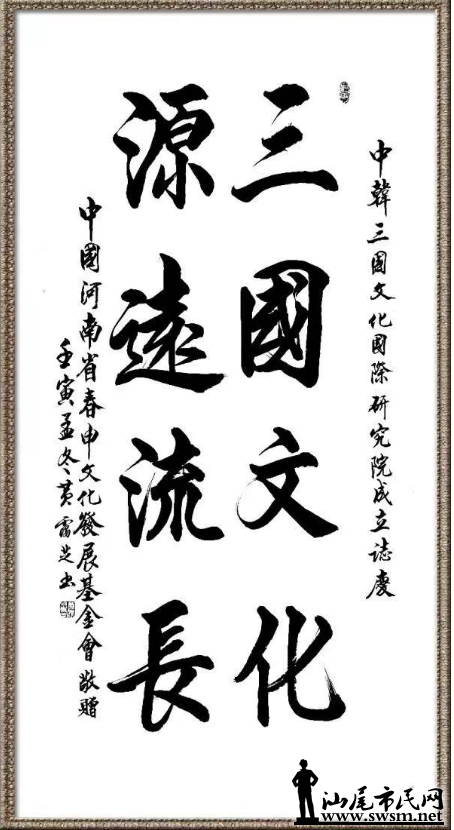 中韓三國文化國際研究院成立誌慶
三國文化
源遠流長
中國河南省春申文化發展基金會敬贈
壬寅孟冬黄雷芝书
汕尾市民网
www.swsm.net